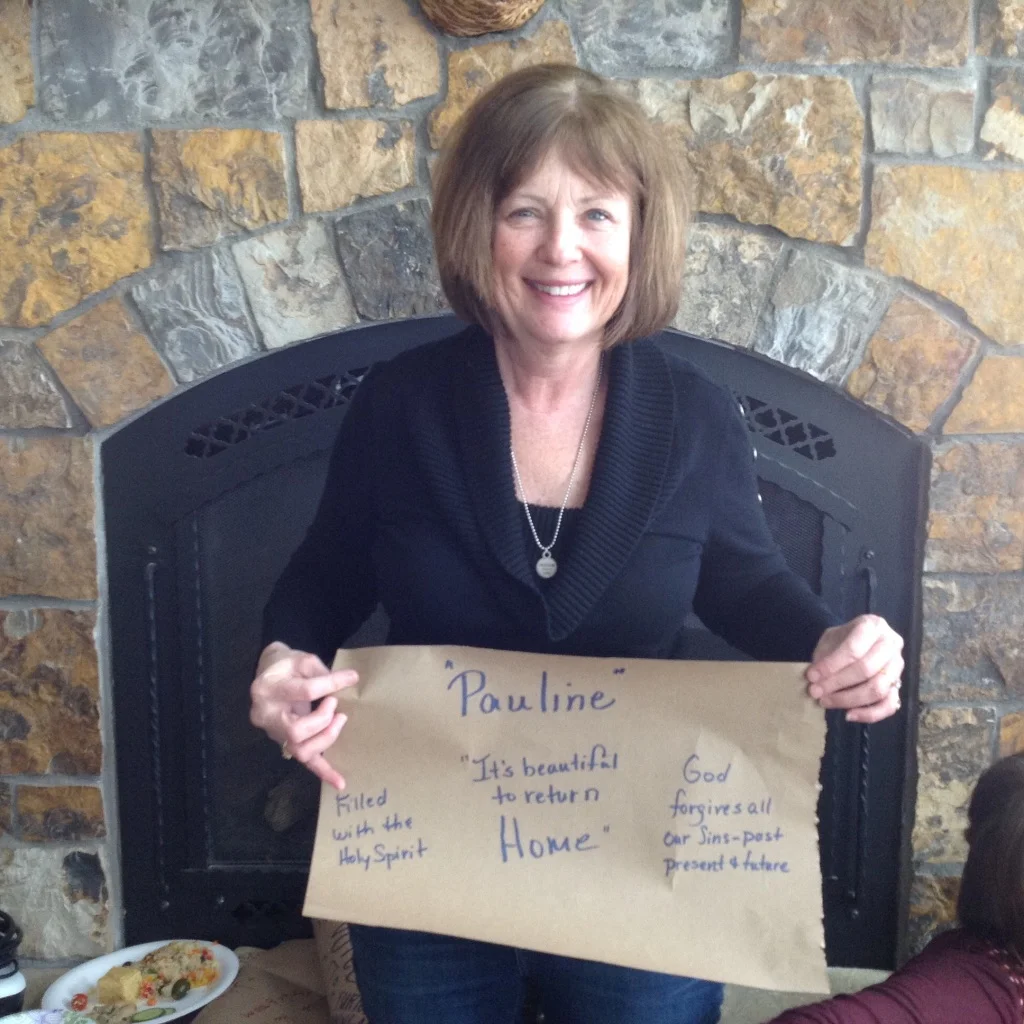 "Pauline"
"It's beautiful
to return
Home"
Filled
with the
Holy Spirit
God
forgives all
our Sins-past
present & future